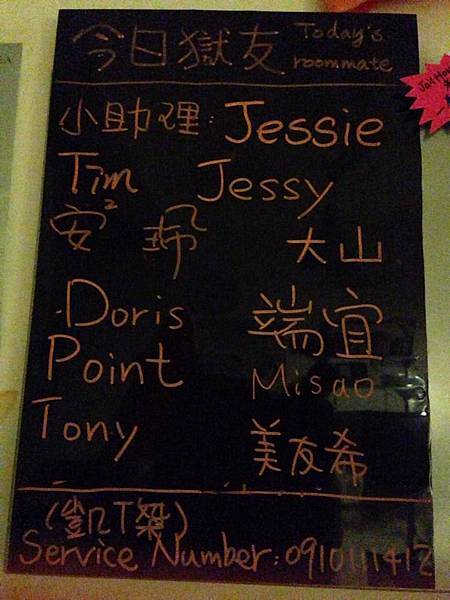 今日獄友 Today's roommate
小助理: Jessie
Tim Jessy
安² 珮 大山
Doris 端宜
Point Misao
Tony 美友希
(凱T桀)
Service Number: 0910111412